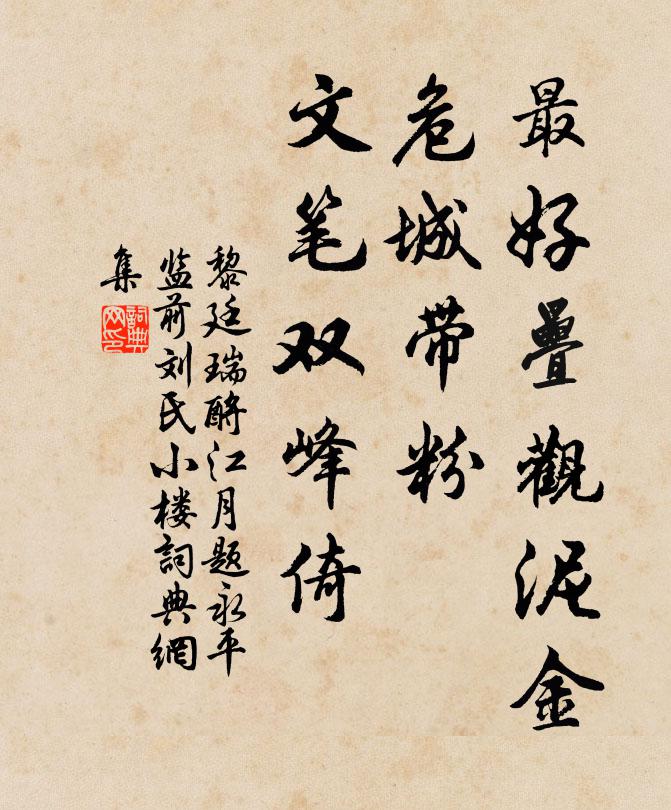 最好疊觀泥金
危城带粉
文笔双峰倚
黎廷瑞酹江月题永平
监前刘氏小楼詞典網
集
詞典
网印